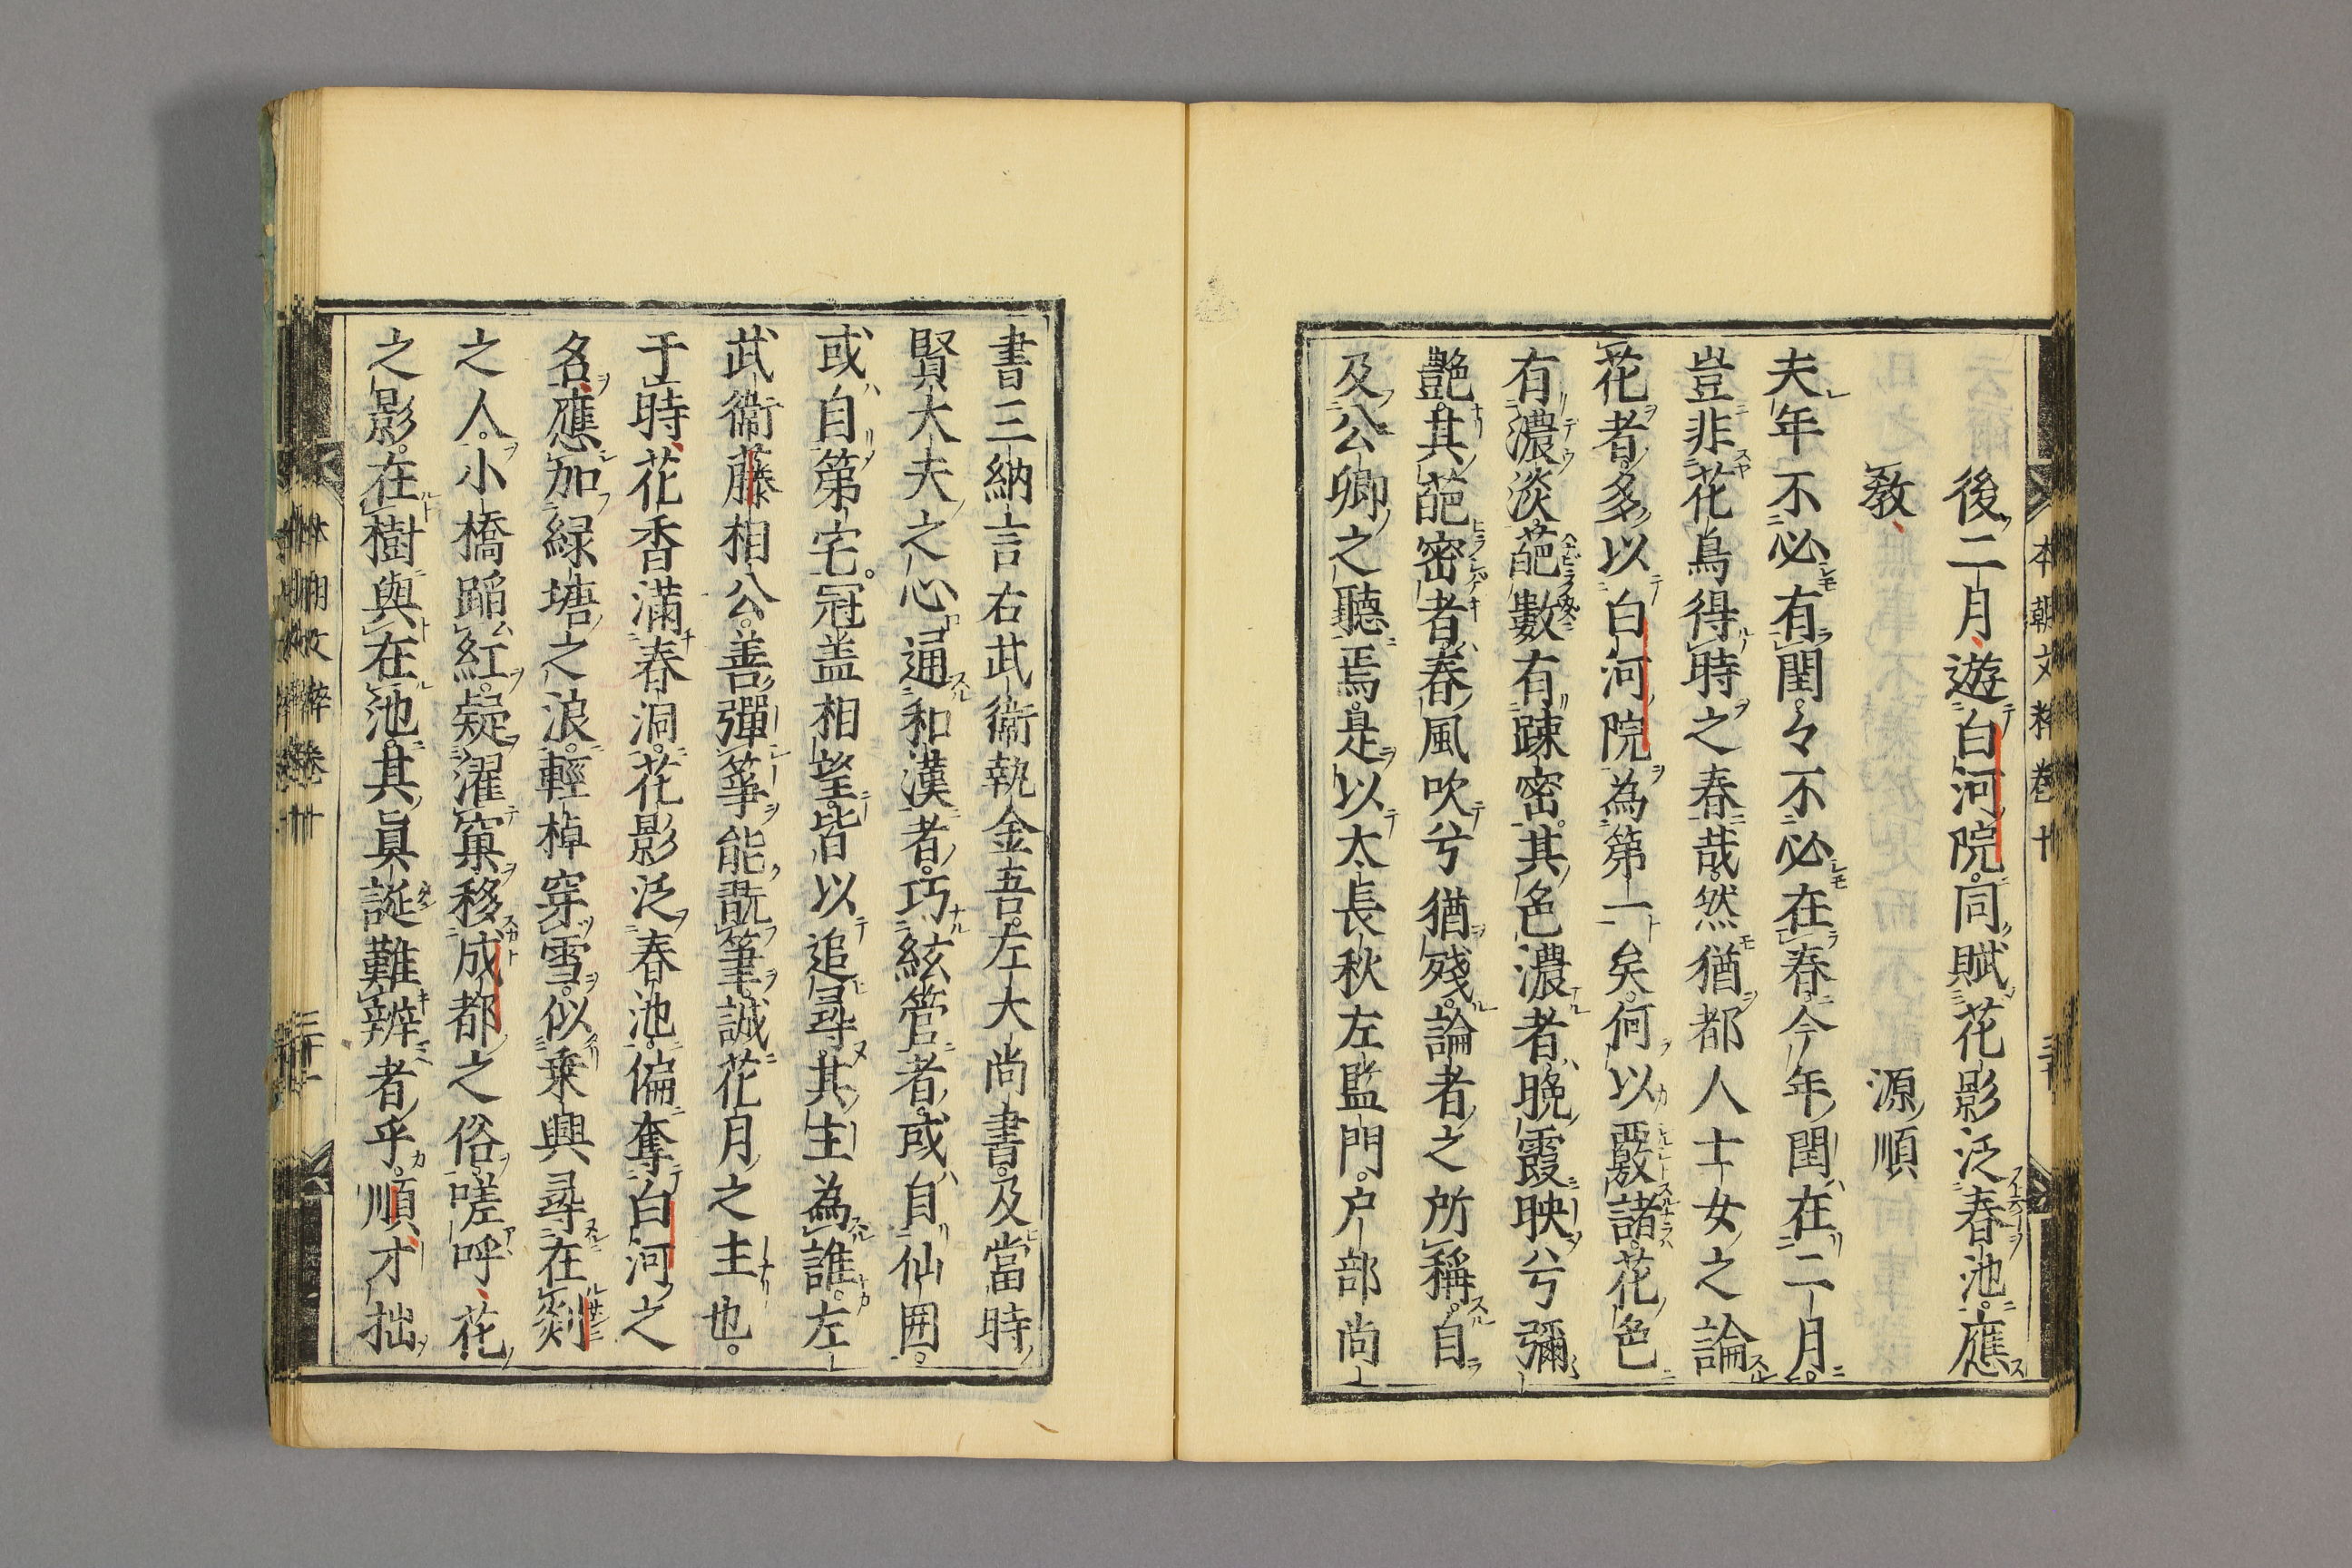 後二月遊白河院同賦花影泛春池應
教　　　　　源順
夫年不必有閏々不必在春今年閏在二月
豈非花鳥得時之春哉然猶都人士女之論
花者多以白河院為第一矣何以覈諸花色
有濃淡葩數有踈密其色濃者晩霞映兮彌
艶其葩密者春風吹兮猶殘論者之所稱自
及公卿之聽焉是以太長秋左監門户部尚
書三納言右武衞執金吾左大尚書及當時
賢大夫之心通和漢者巧絃管者或自仙囲
或自第宅冠盖相望皆以追尋其主為誰左
武衞藤相公善彈箏能翫筆誠花月之主也
于時花香滿春洞花影泛春池偏奪白河之
名應加緑塘之浪輕棹穿雪似乗興尋在剡
之人小橋蹈紅疑濯窠移成都之俗嗟呼花
之影在樹與在池其眞誕難辨者乎順才拙
本朝文粹卷十